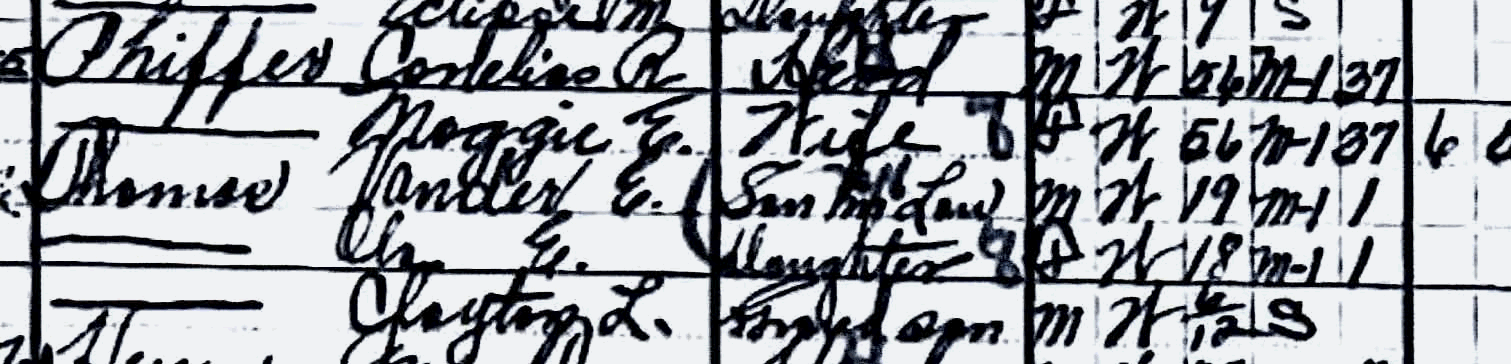 M. Daughter F W 9 S
Phiffer Cornelius R Head M W 56 M-1 37
Maggie E. Wife 8 F W 56 M-1 37 6
Thomas Vander E. Son In Law M W 19 M-1 1
E. Daughter 8 F W 18 M-1 1
Clayton L. Grandson M W 6/12 S